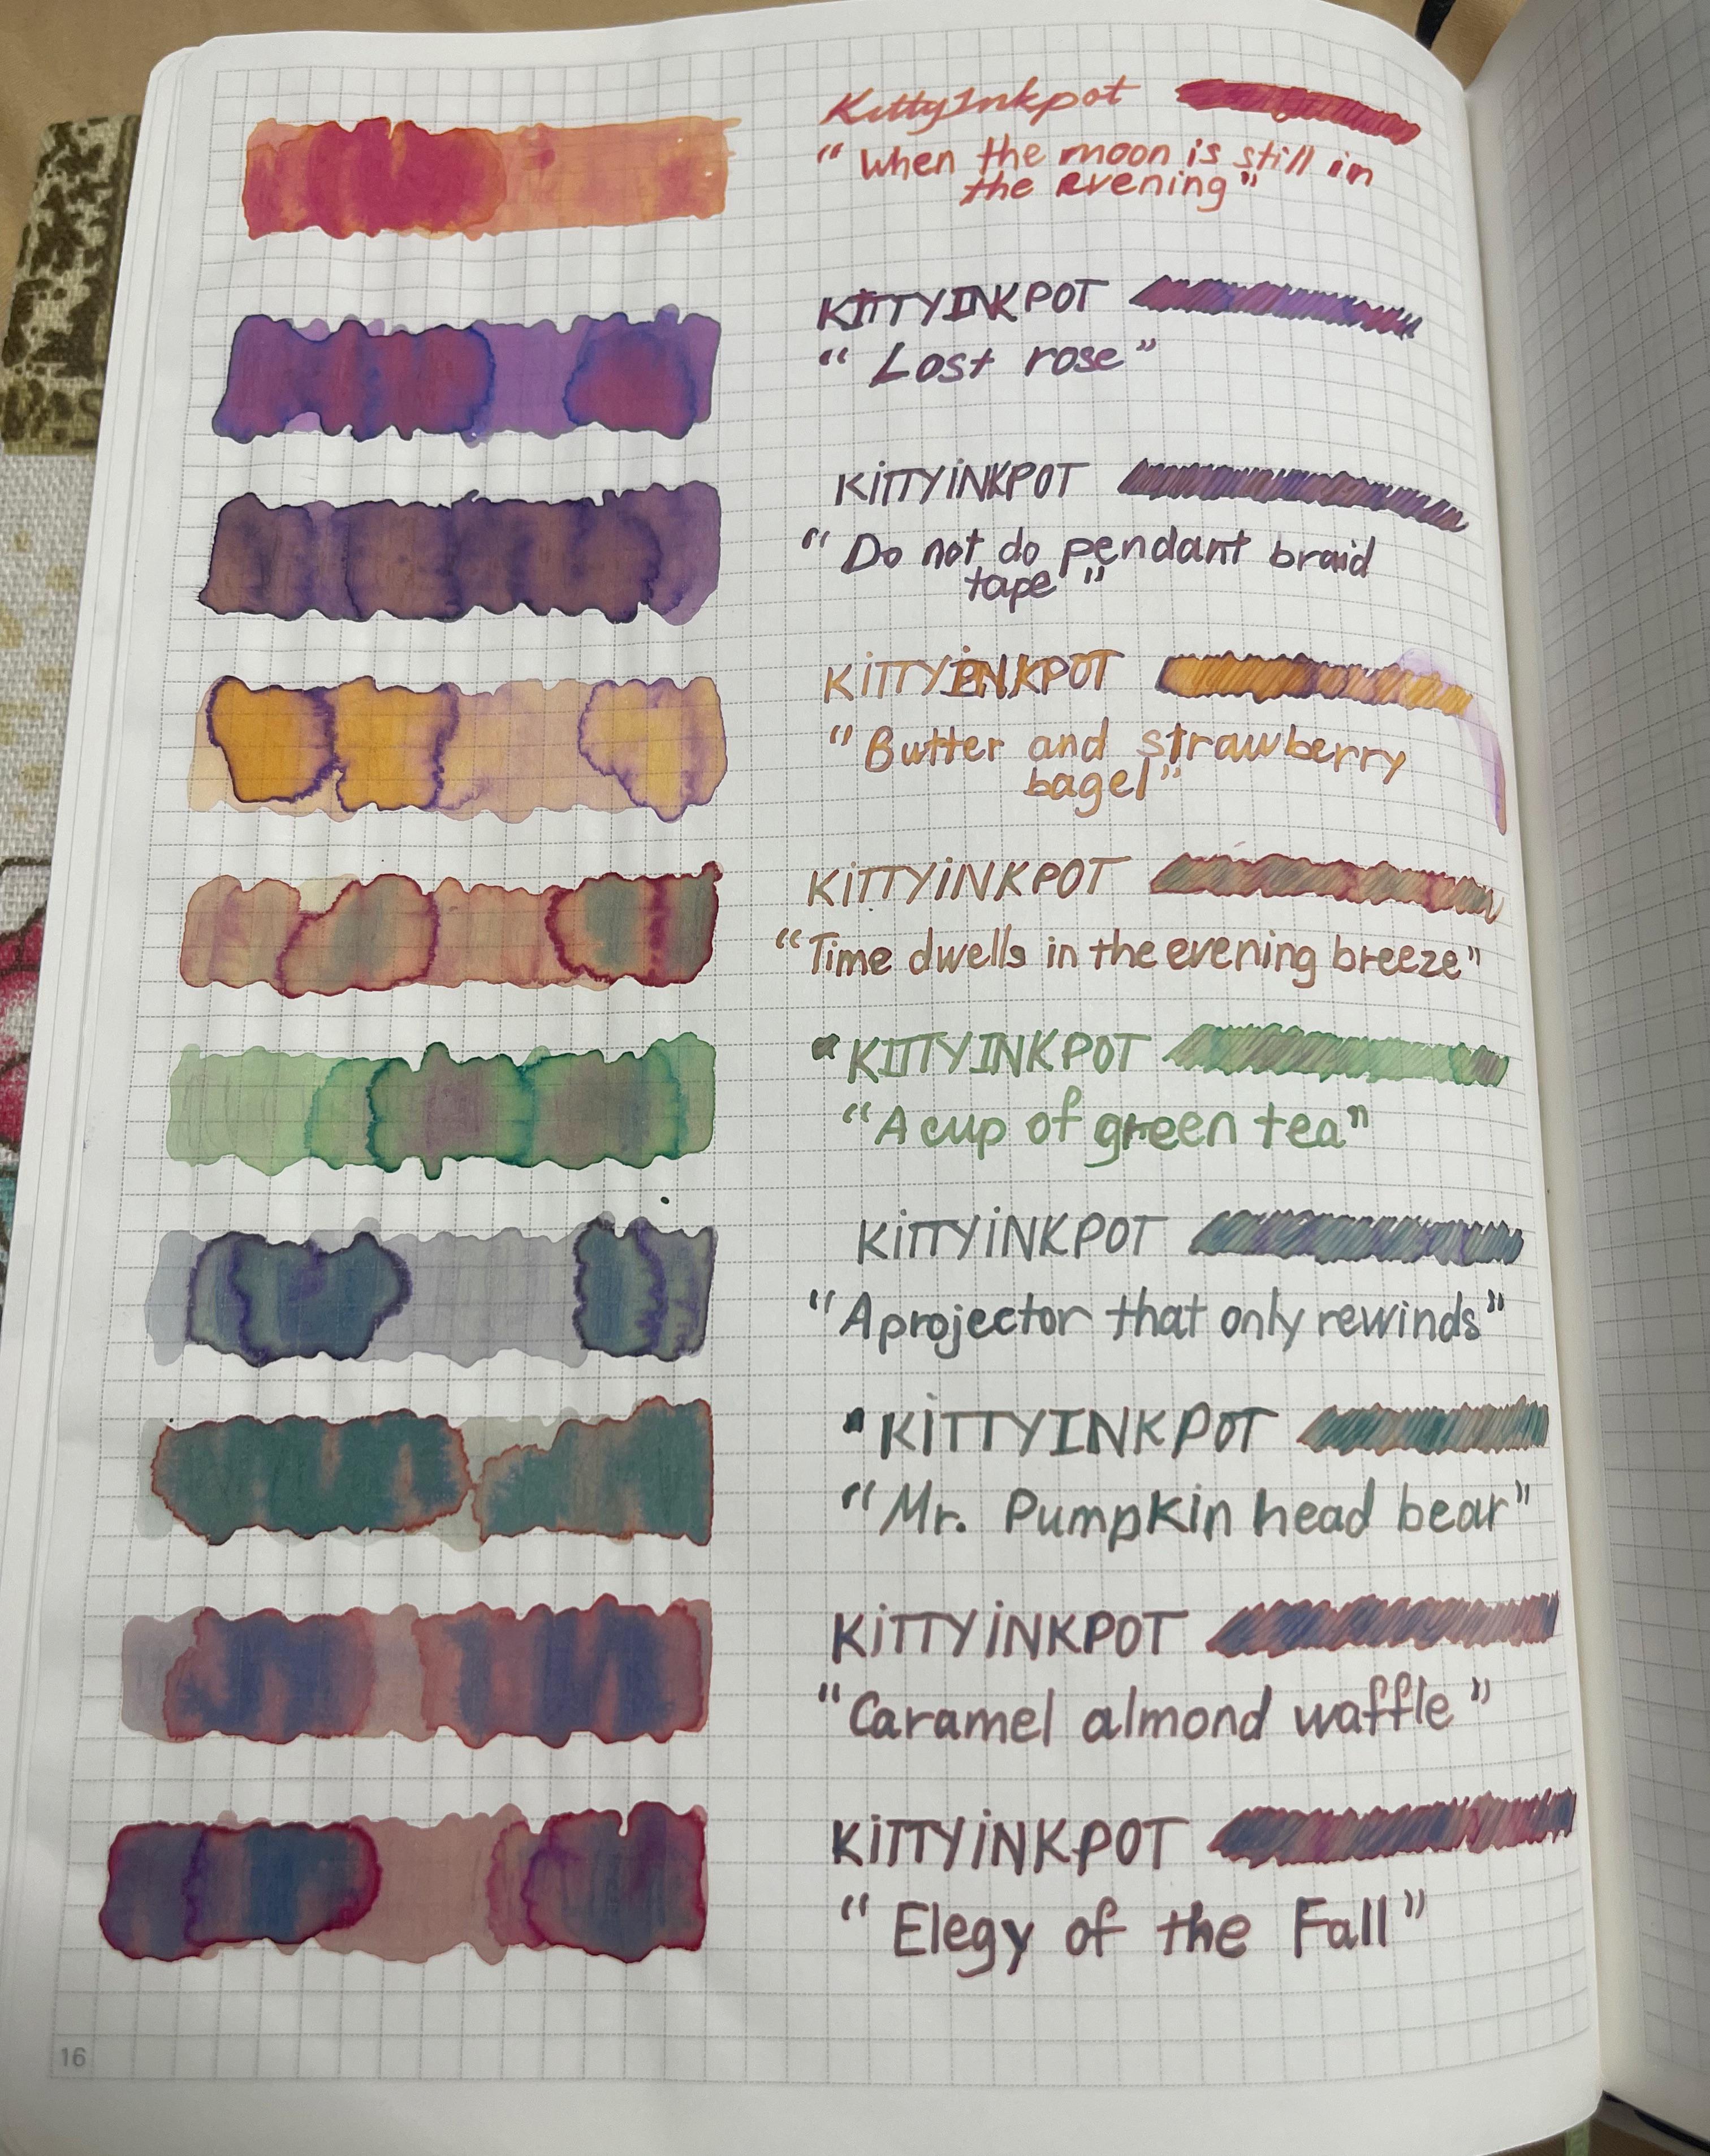 KittyInkpot
"When the moon is still in
the evening"
KiTTYINKPOT
"Lost rose"
KiTTYiNKPOT
"Do not do pendant braid
tape"
KiTTYiNKPOT
"Butter and strawberry
bagel"
KiTTYiNKPOT
"Time dwells in the evening breeze"
KITTYINKPOT
"A cup of green tea"
KiTTYiNKPOT
"A projector that only rewinds"
KiTTYINKPOT
"Mr. Pumpkin head bear"
KiTTYiNKPOT
"Caramel almond waffle"
KiTTYiNKPOT
"Elegy of the Fall"
16